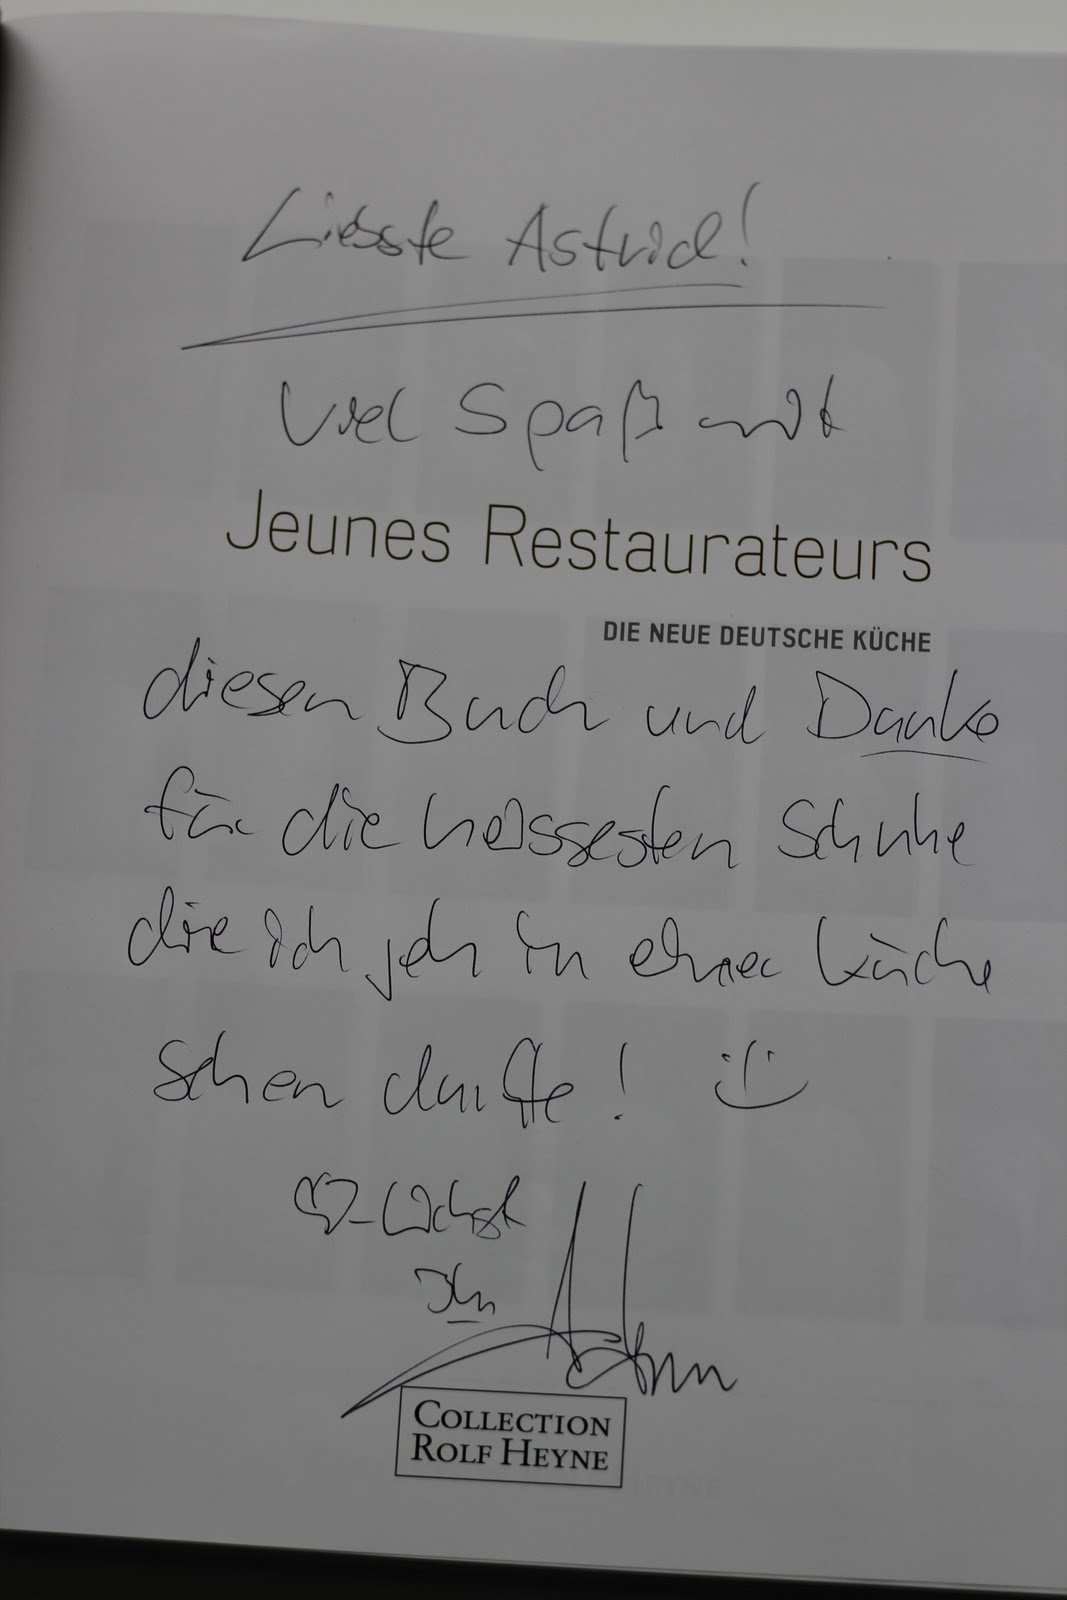 Liebste Astrid!
Viel Spaß mit
Jeunes Restaurateurs
DIE NEUE DEUTSCHE KÜCHE
diesen Buch und Danke
für die heissesten Schuhe
die ich jeh in einer Küche
sehen durfte! :-)
♡-Lichst
COLLECTION
ROLF HEYNE